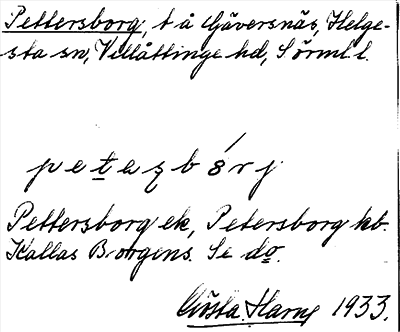 Pettersborg, t å Gäversnäs, Helge-
sta sn, Villåttinge hd, Sörml l.
Pettersborg ek, Petersborg kb.
Kallas Borgens. Se do.
Gösta Harne 1933.